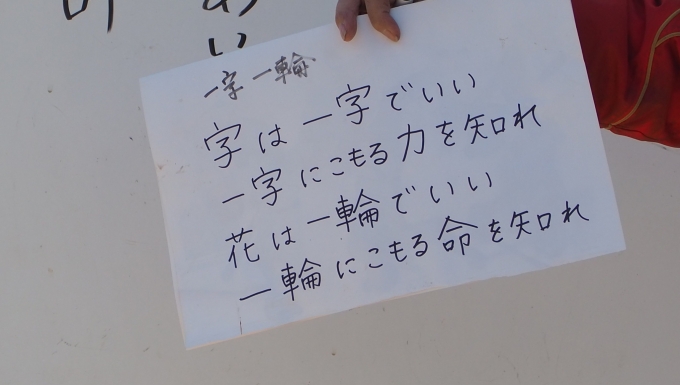 一字 一輪
字は一字でいい
一字にこもる力を知れ
花は一輪でいい
一輪にこもる命を知れ